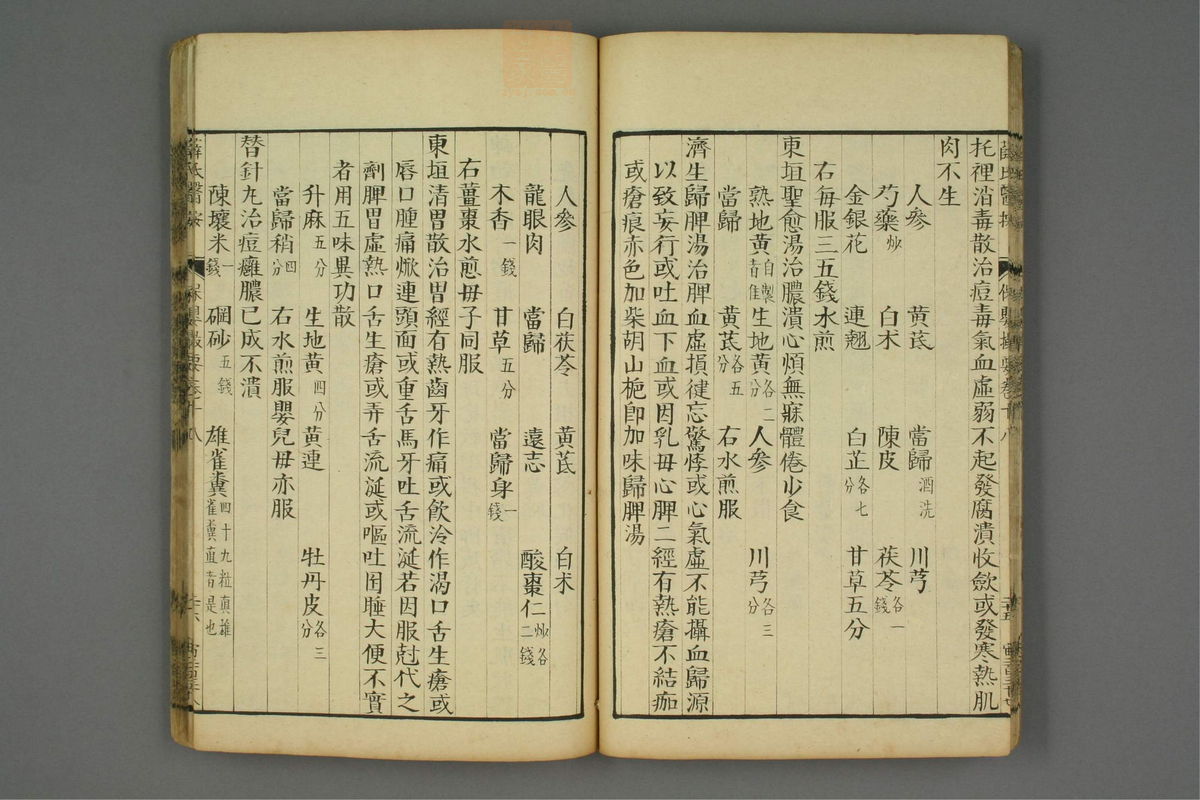 托裡消毒散治痘毒氣血虛弱不起發腐潰收斂或發寒熱肌
肉不生
人參 黃茋 當歸酒洗 川芎
芍藥炒 白朮 陳皮 茯苓各一錢
金銀花 連翹 白芷各七分 甘草五分
右每服三五錢水煎
東垣聖愈湯治膿潰心煩無寐體倦少食
熟地黃自製者佳 生地黃各二分 人參 川芎各三分
當歸 黃茋各五分 右水煎服
濟生歸脾湯治脾血虛損健忘驚悸或心氣虛不能攝血歸源
以致妄行或吐血下血或因乳母心脾二經有熱瘡不結痂
或瘡痕赤色加柴胡山梔卽加味歸脾湯
人參 白茯苓 黃茋 白朮
龍眼肉 當歸 遠志 酸棗仁炒各二錢
木香一錢 甘草五分 當歸身一錢
右薑棗水煎母子同服
東垣清胃散治胃經有熱齒牙作痛或飲冷作渴口舌生瘡或
唇口腫痛焮連頭面或重舌馬牙吐舌流涎若因服尅代之
劑脾胃虛熱口舌生瘡或弄舌流涎或嘔吐困睡大便不實
者用五味異功散
升麻五分 生地黃四分 黃連 牡丹皮各三分
當歸稍四分 右水煎服嬰兒母亦服
替針丸治痘癰膿已成不潰
陳壞米一錢 硇砂五錢 雄雀糞四十九粒直雄雀糞直者是也
薛氏醫按 保嬰撮要卷十八 二十六